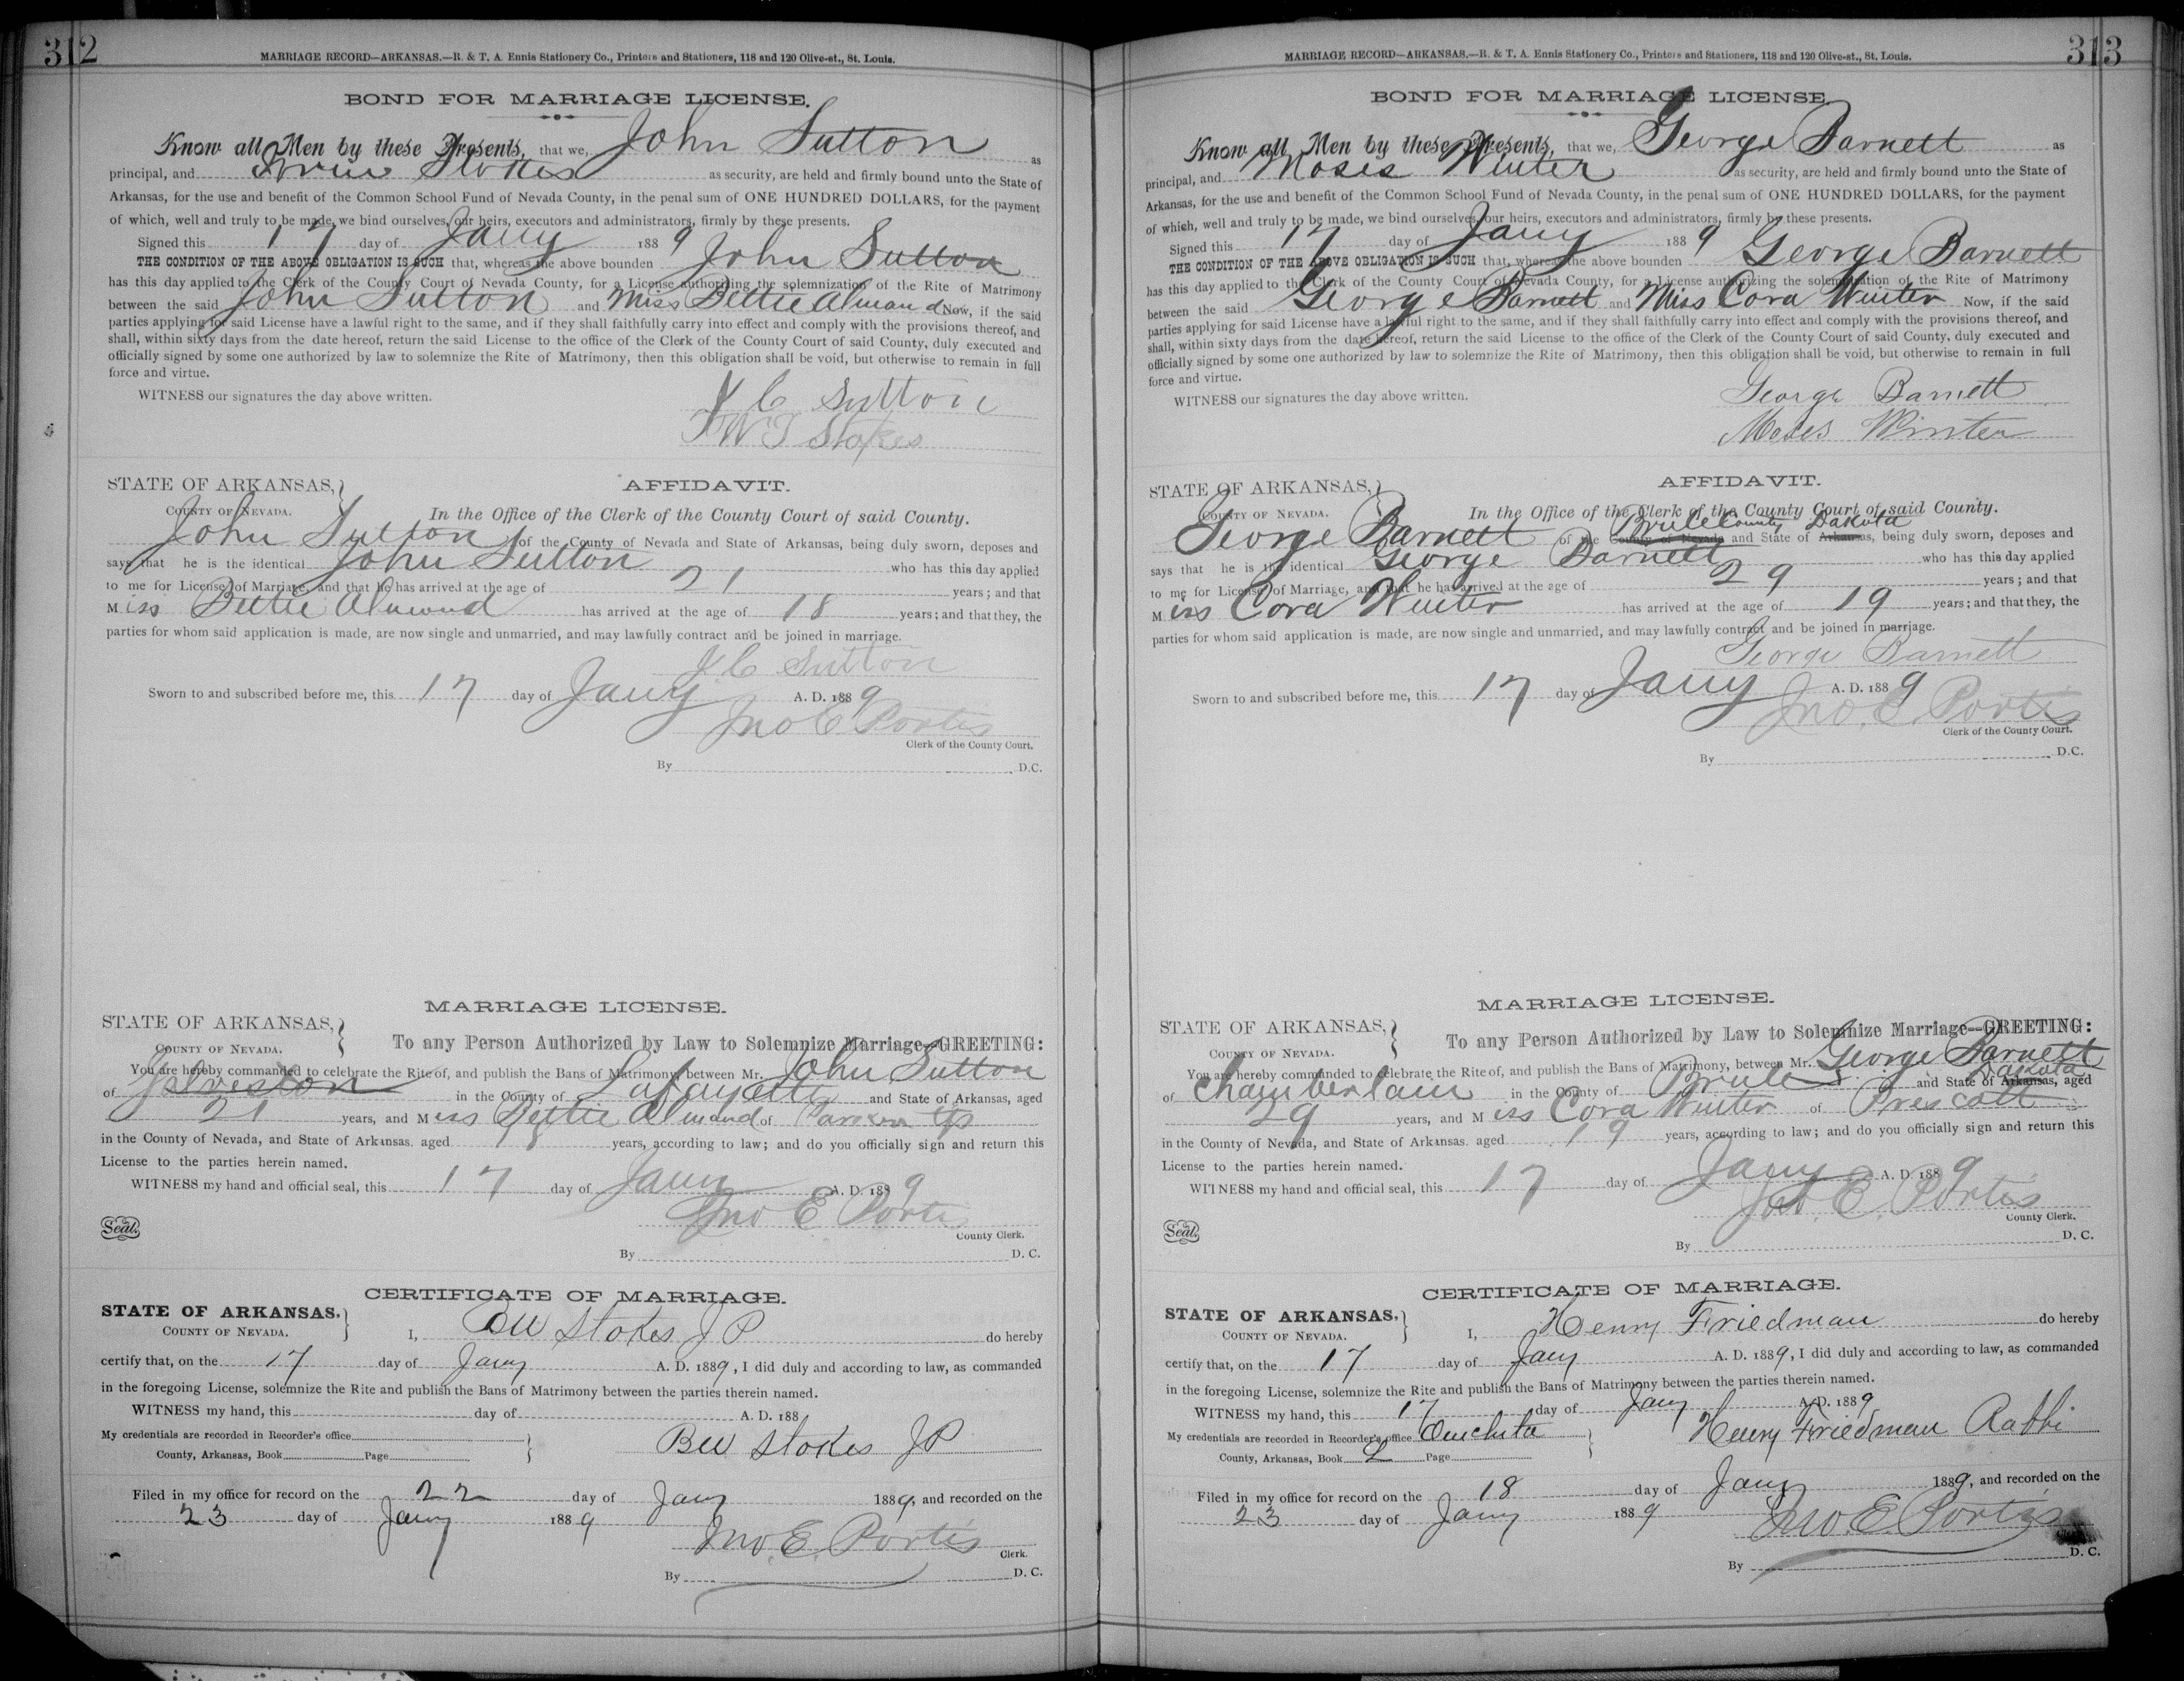 312
MARRIAGE RECORD—ARKANSAS.—R. & T. A. Ennis Stationery Co., Printers and Stationers, 118 and 120 Olive-st., St. Louis.
BOND FOR MARRIAGE LICENSE.
Know all Men by these Presents, that we, John Sutton as
principal, and Stokes as security, are held and firmly bound unto the State of
Arkansas, for the use and benefit of the Common School Fund of Nevada County, in the penal sum of ONE HUNDRED DOLLARS, for the payment
of which, well and truly to be made, we bind ourselves, our heirs, executors and administrators, firmly by these presents.
Signed this 17 day of Jany 1889
THE CONDITION OF THE ABOVE OBLIGATION IS SUCH that, whereas the above bounden John Sutton
has this day applied to the Clerk of the County Court of Nevada County, for a License authorizing the solemnization of the Rite of Matrimony
between the said John Sutton and Miss Bettie Almand Now, if the said
parties applying for said License have a lawful right to the same, and if they shall faithfully carry into effect and comply with the provisions thereof, and
shall, within sixty days from the date hereof, return the said License to the office of the Clerk of the County Court of said County, duly executed and
officially signed by some one authorized by law to solemnize the Rite of Matrimony, then this obligation shall be void, but otherwise to remain in full
force and virtue.
WITNESS our signatures the day above written.
J C Sutton
W T Stokes
STATE OF ARKANSAS,
AFFIDAVIT.
COUNTY OF NEVADA.
In the Office of the Clerk of the County Court of said County.
John Sutton of the County of Nevada and State of Arkansas, being duly sworn, deposes and
says that he is the identical John Sutton who has this day applied
to me for License of Marriage, and that he has arrived at the age of 21 years; and that
Miss Bettie Almand has arrived at the age of 18 years; and that they, the
parties for whom said application is made, are now single and unmarried, and may lawfully contract and be joined in marriage.
J C Sutton
Sworn to and subscribed before me, this 17 day of Jany A. D. 1889
Jno E Portis
Clerk of the County Court.
By D.C.
MARRIAGE LICENSE.
STATE OF ARKANSAS,
COUNTY OF NEVADA.
To any Person Authorized by Law to Solemnize Marriage—GREETING:
You are hereby commanded to celebrate the Rite of, and publish the Bans of Matrimony, between Mr. John Sutton
of in the County of Lafayette and State of Arkansas, aged
21 years, and Miss Bettie Almand of
in the County of Nevada, and State of Arkansas. aged 18 years, according to law; and do you officially sign and return this
License to the parties herein named.
WITNESS my hand and official seal, this 17 day of Jany A. D. 1889
Jno E Portis
Seal.
County Clerk.
By D. C.
CERTIFICATE OF MARRIAGE.
STATE OF ARKANSAS,
COUNTY OF NEVADA.
I, BW Stokes J P do hereby
certify that, on the 17 day of Jany A. D. 1889, I did duly and according to law, as commanded
in the foregoing License, solemnize the Rite and publish the Bans of Matrimony between the parties therein named.
WITNESS my hand, this day of A. D. 188
My credentials are recorded in Recorder's office
BW Stokes JP
County, Arkansas, Book Page
Filed in my office for record on the 22 day of Jany 1889, and recorded on the
23 day of Jany 1889
Jno. E. Portis
Clerk.
By D. C.
313
MARRIAGE RECORD—ARKANSAS.—R. & T. A. Ennis Stationery Co., Printers and Stationers, 118 and 120 Olive-st., St. Louis.
BOND FOR MARRIAGE LICENSE.
Know all Men by these Presents, that we, George Barnett as
principal, and Moses Winter as security, are held and firmly bound unto the State of
Arkansas, for the use and benefit of the Common School Fund of Nevada County, in the penal sum of ONE HUNDRED DOLLARS, for the payment
of which, well and truly to be made, we bind ourselves, our heirs, executors and administrators, firmly by these presents.
Signed this 17 day of Jany 1889
THE CONDITION OF THE ABOVE OBLIGATION IS SUCH that, whereas the above bounden George Barnett
has this day applied to the Clerk of the County Court of Nevada County, for a License authorizing the solemnization of the Rite of Matrimony
between the said George Barnett and Miss Cora Winter Now, if the said
parties applying for said License have a lawful right to the same, and if they shall faithfully carry into effect and comply with the provisions thereof, and
shall, within sixty days from the date hereof, return the said License to the office of the Clerk of the County Court of said County, duly executed and
officially signed by some one authorized by law to solemnize the Rite of Matrimony, then this obligation shall be void, but otherwise to remain in full
force and virtue.
WITNESS our signatures the day above written.
George Barnett
Moses Winter
STATE OF ARKANSAS,
AFFIDAVIT.
COUNTY OF NEVADA.
In the Office of the Clerk of the County Court of said County.
Brule County Dakota
George Barnett of the County of Nevada and State of Arkansas, being duly sworn, deposes and
says that he is the identical George Barnett who has this day applied
to me for License of Marriage, and that he has arrived at the age of 29 years; and that
Miss Cora Winter has arrived at the age of 19 years; and that they, the
parties for whom said application is made, are now single and unmarried, and may lawfully contract and be joined in marriage.
George Barnett
Sworn to and subscribed before me, this 17 day of Jany A. D. 1889
Jno. E. Portis
Clerk of the County Court.
By D.C.
MARRIAGE LICENSE.
STATE OF ARKANSAS,
COUNTY OF NEVADA.
To any Person Authorized by Law to Solemnize Marriage—GREETING:
You are hereby commanded to celebrate the Rite of, and publish the Bans of Matrimony, between Mr. George Barnett
Dakota
of Chamberlain in the County of Brule and State of Arkansas, aged
29 years, and Miss Cora Winter of Prescott
in the County of Nevada, and State of Arkansas. aged 19 years, according to law; and do you officially sign and return this
License to the parties herein named.
WITNESS my hand and official seal, this 17 day of Jany A. D. 1889
Jno. E. Portis
Seal.
County Clerk.
By D. C.
CERTIFICATE OF MARRIAGE.
STATE OF ARKANSAS,
COUNTY OF NEVADA.
I, Henry Friedman do hereby
certify that, on the 17 day of Jany A. D. 1889, I did duly and according to law, as commanded
in the foregoing License, solemnize the Rite and publish the Bans of Matrimony between the parties therein named.
WITNESS my hand, this 17 day of Jany A. D. 1889
My credentials are recorded in Recorder's office Ouichita
Henry Friedman Rabbi
County, Arkansas, Book L Page
Filed in my office for record on the 18 day of Jany 1889, and recorded on the
23 day of Jany 1889
Jno. E. Portis
Clerk.
By D. C.